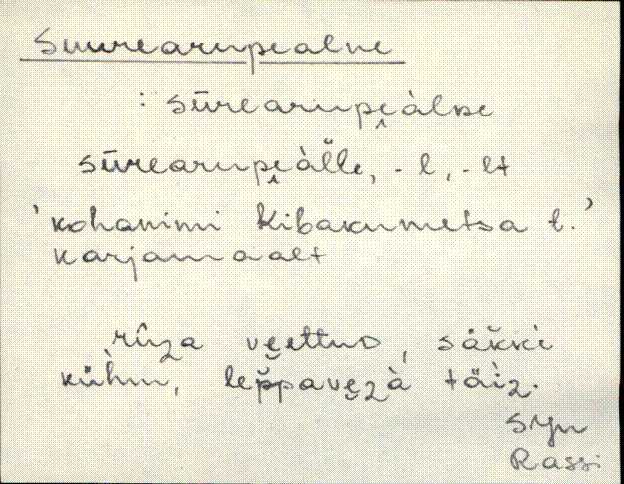 Suurearupealne
: sūrearupi̭àlse
sūrearupi̭àl̆le, -l, -lt
'kohanimi Kibakumetsa t.'
karjamaalt
rûza veettuD, säkki
kühm, leppavezà täiz.
SJn
Rassi